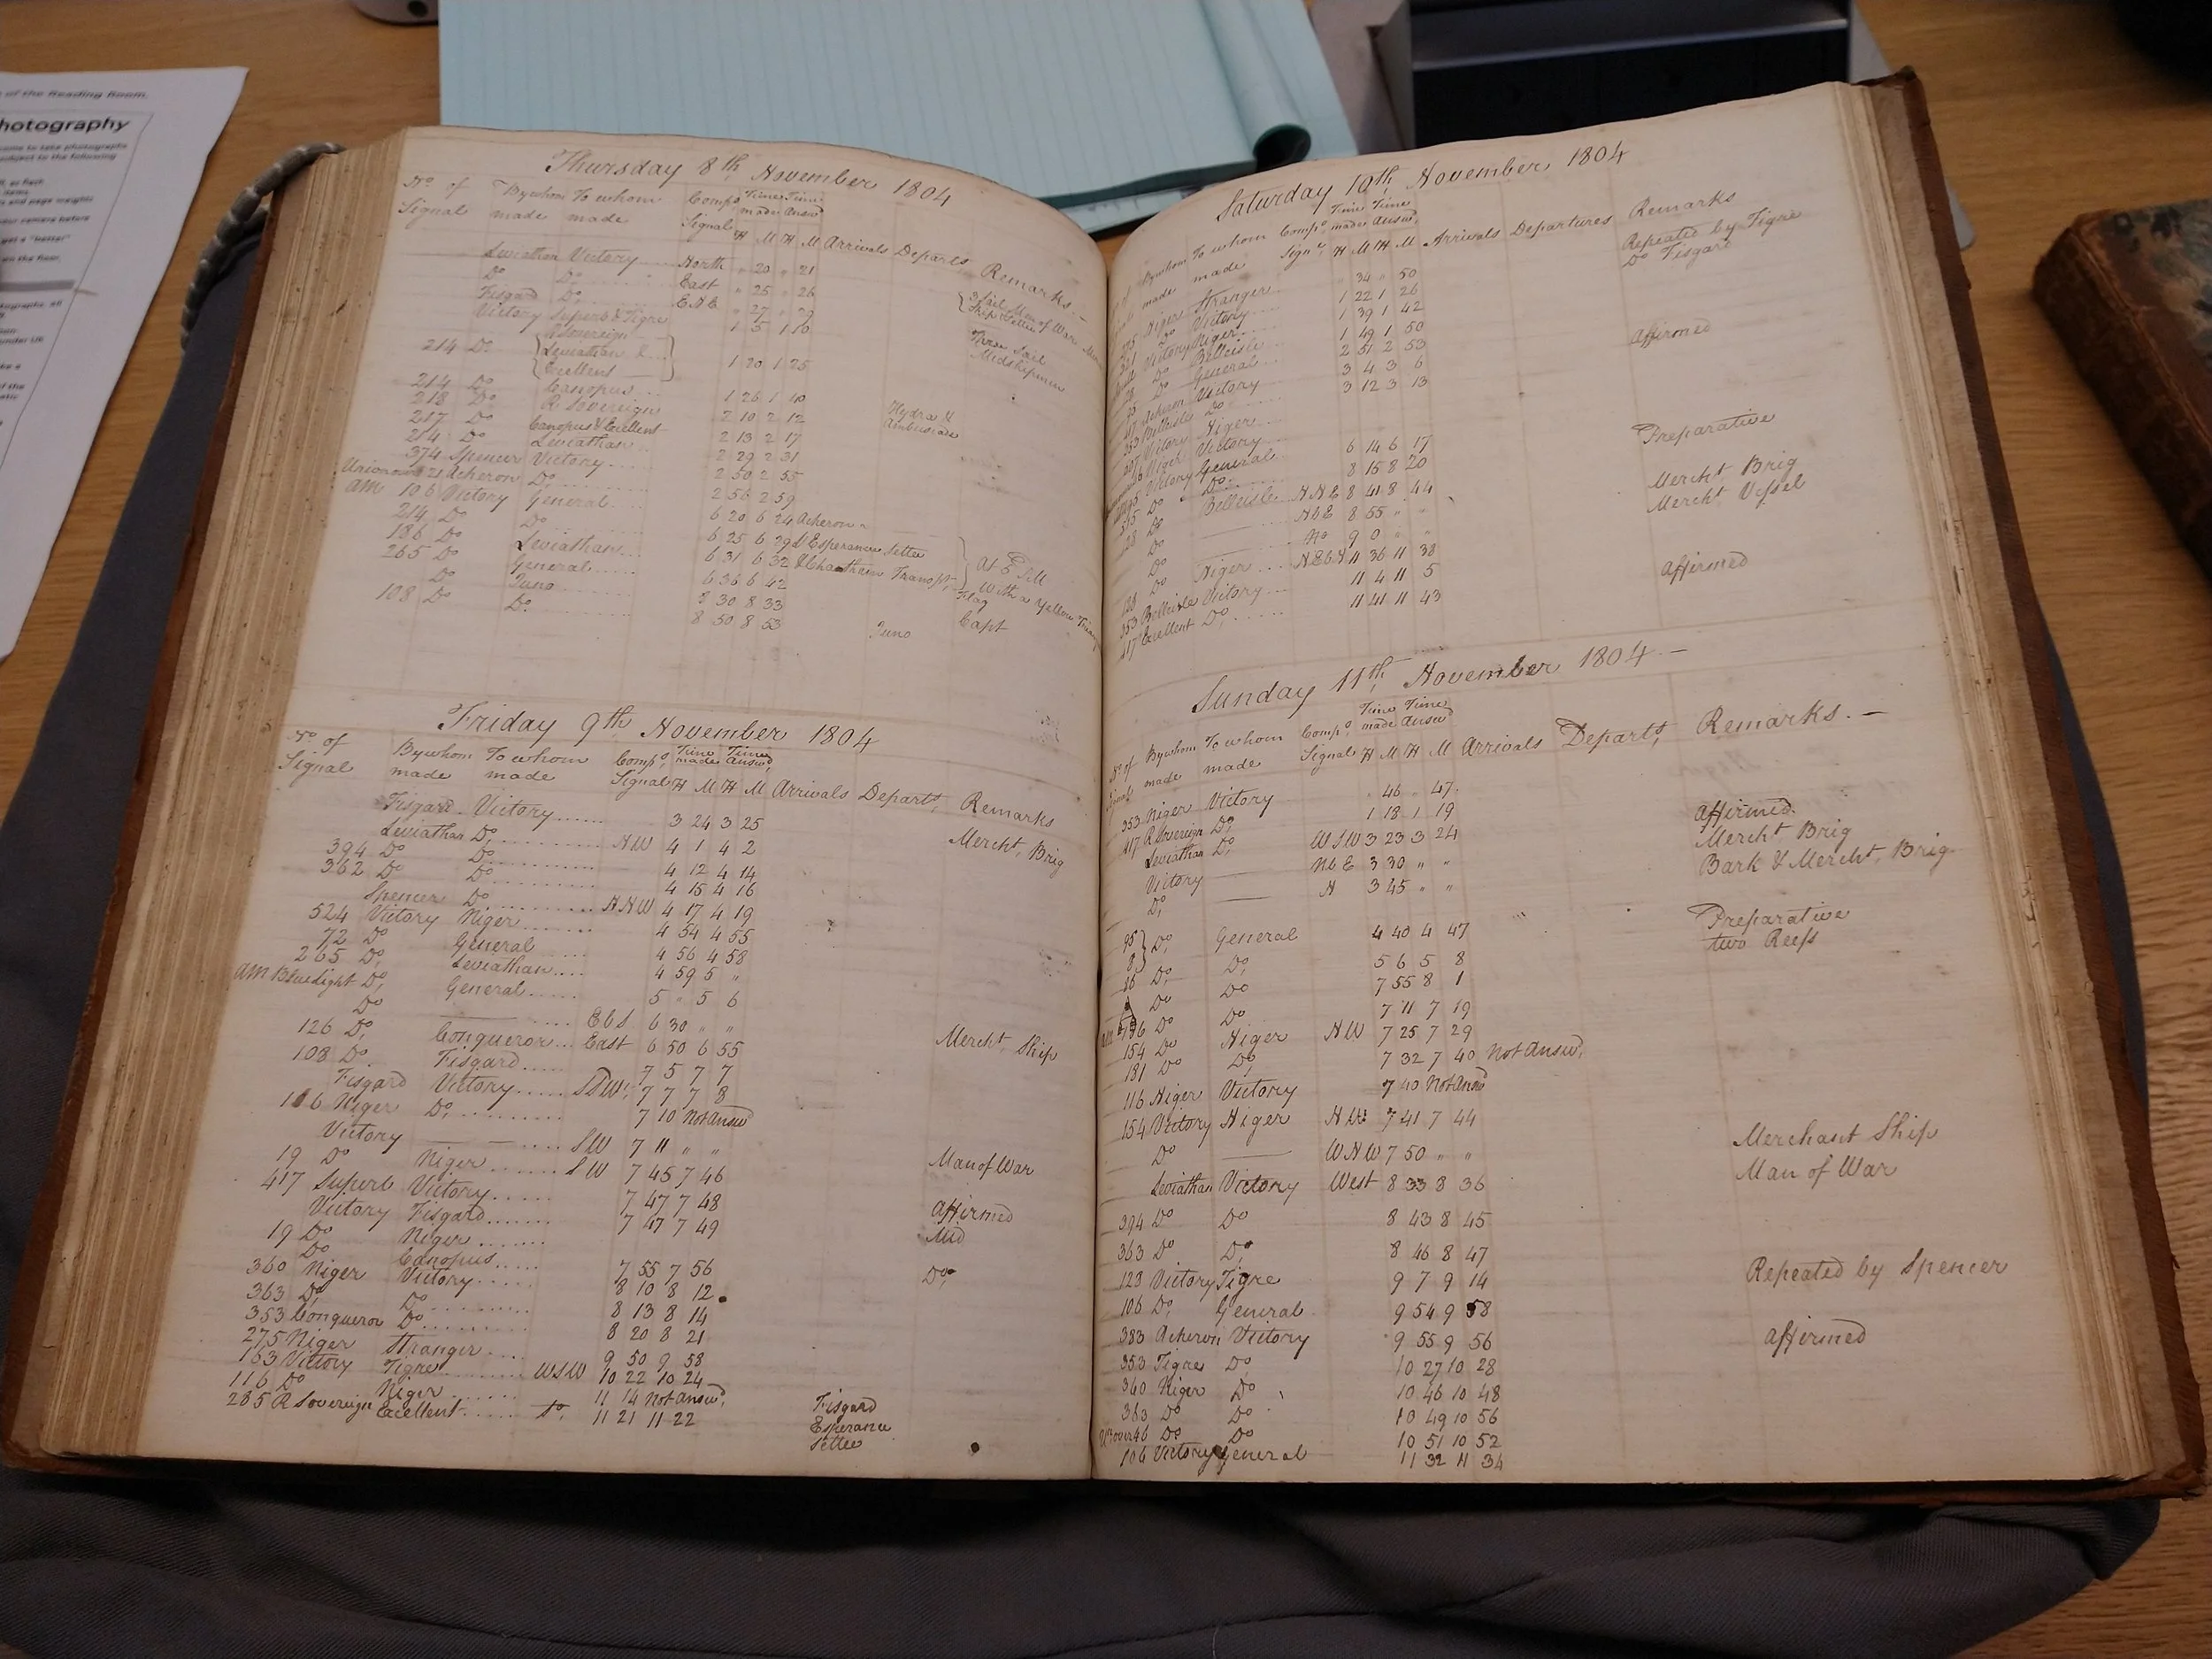 of the Reading Room.
hotography
come to take photographs
subject to the following
Thursday 8th November 1804
No. of By whom To whom Comps Time Time
Signal made made Signal made Answd
H M H M Arrivals Departs Remarks.—
Leviathan Victory North " 20 " 21
Do Do East " 25 " 26
Fisgard Do " 27 " 29
Victory Superb & Tigre 1 5 1 10
R Sovereign
214 Do Leviathan & 1 20 1 25
Excellent
214 Do Canopus 1 26 1 40
218 Do R Sovereign 2 10 2 12 Hydra &
217 Do Canopus & Excellent 2 13 2 17 Ambuscade
214 Do Leviathan 2 29 2 31
374 Spencer Victory 2 50 2 55
21 Acheron Do 2 56 2 59
AM 106 Victory General 6 20 6 24 Acheron
214 Do Do 6 25 6 29 Esperance Settee
186 Do Leviathan 6 31 6 32 & Chatham Transpt
265 Do General 6 36 6 42 With a Yellow
Do Juno 8 30 8 33 Flag
108 Do Do 8 50 8 53 Juno Capt
Friday 9th November 1804
No. of By whom To whom Comps Time Time
Signal made made Signal made Answd
H M H M Arrivals Departs Remarks
Fisgard Victory 3 24 3 25
Leviathan Do NW 4 1 4 2 Mercht Brig
394 Do Do 4 12 4 14
362 Do Do 4 15 4 16
Spencer Do NNW 4 17 4 19
524 Victory Niger 4 54 4 55
72 Do General 4 56 4 58
265 Do Leviathan 4 59 5 "
AM Blue light Do General 5 " 5 6
Do — EbS 6 30 " "
126 Do Conqueror East 6 50 6 55 Mercht Ship
108 Do Fisgard 7 5 7 7
Fisgard Victory 7 7 7 8
116 Niger Do 7 10 Not Answd
Victory — SW 7 11 " "
19 Do Niger SW 7 45 7 46 Man of War
417 Superb Victory 7 47 7 48
Victory Fisgard 7 47 7 49 Affirmed
19 Do Niger Mid
Do Canopus 7 55 7 56
360 Niger Victory 8 10 8 12 Do
363 Do Do 8 13 8 14
353 Conqueror Do 8 20 8 21
275 Niger Stranger 9 50 9 58
163 Victory Tigre WSW 10 22 10 24
116 Do Niger 11 14 Not Answd Fisgard
285 R Sovereign Excellent 11 21 11 22 Esperance
Settee
Saturday 10th November 1804
By whom To whom Comps Time Time
made made Signl made Answd
H M H M Arrivals Departures Remarks
Niger Stranger " 34 " 50 Repeated by Tigre
Do Victory 1 22 1 26 Do Fisgard
Victory Niger 1 39 1 42
Do Belleisle 1 49 1 50
Do General 2 51 2 53 Affirmed
Acheron Victory 3 4 3 6
353 Belleisle Do 3 12 3 13
Victory Niger
Niger Victory 6 14 6 17 Preparative
Victory General 8 15 8 20
Do Do
Do Belleisle NNE 8 41 8 44 Mercht Brig
Do — NbE 8 55 " " Mercht Vessel
Do — No 9 0 " "
Do Niger 11 36 11 38
353 Belleisle Victory 11 4 11 5 Affirmed
417 Excellent Do 11 41 11 43
Sunday 11th November 1804—
No. of By whom To whom Comps Time Time
made made Signal made Answd
H M H M Arrivals Departs Remarks.—
353 Niger Victory " 46 " 47
417 R Sovereign Do 1 18 1 19 Affirmed
Leviathan Do WSW 3 23 3 24 Mercht Brig
Victory — NbE 3 30 " " Bark & Mercht Brig
Do — N 3 45 " "
95 Do General 4 40 4 47 Preparative
8 Do 5 6 5 8 two Reefs
16 Do Do 7 55 8 1
Do Do 7 11 7 19
Do Niger NW 7 25 7 29
154 Do Do 7 32 7 40 Not Answd
181 Do
116 Niger Victory 7 40 Not Answd
154 Victory Niger NW 7 41 7 44
Do — WNW 7 50 " " Merchant Ship
Leviathan Victory West 8 33 8 36 Man of War
394 Do Do 8 43 8 45
363 Do Do 8 46 8 47
123 Victory Tigre 9 7 9 14 Repeated by Spencer
106 Do General 9 54 9 58
383 Acheron Victory 9 55 9 56 Affirmed
353 Tigre Do 10 27 10 28
360 Niger Do 10 46 10 48
363 Do Do 10 49 10 56
Do Do 10 51 10 52
106 Victory General 11 32 11 34